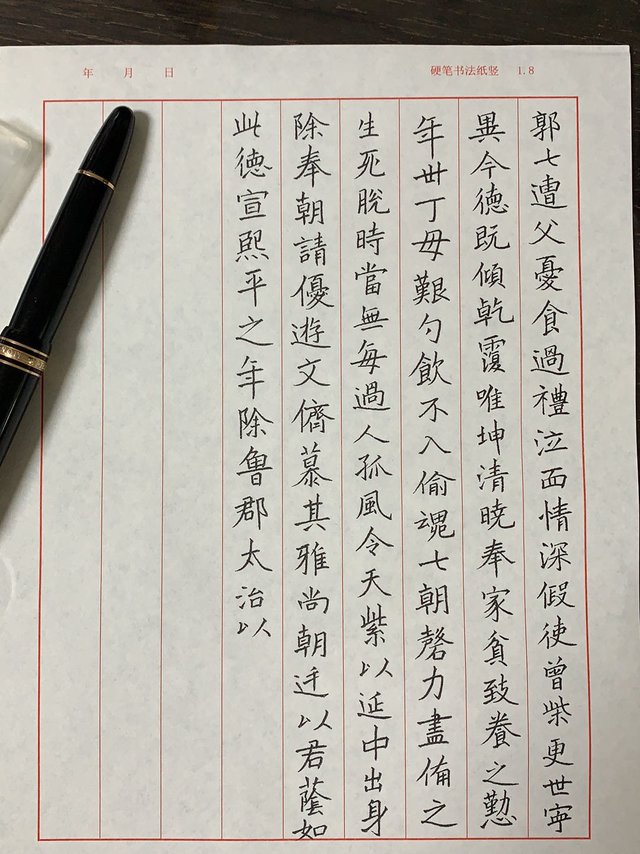 年 月 日
硬笔书法纸竖 1.8
郭七遭父憂食過禮泣面情深假使曾柴更世寧
異今德既傾乾覆唯坤清曉奉家貧致養之懃
年卅丁母艱勺飲不入偷魂七朝磬力盡備之
生死脫時當無每過人孤風令天紫以延中出身
除奉朝請優遊文儕慕其雅尚朝廷以君蔭如
此德宣熙平之年除魯郡太治以